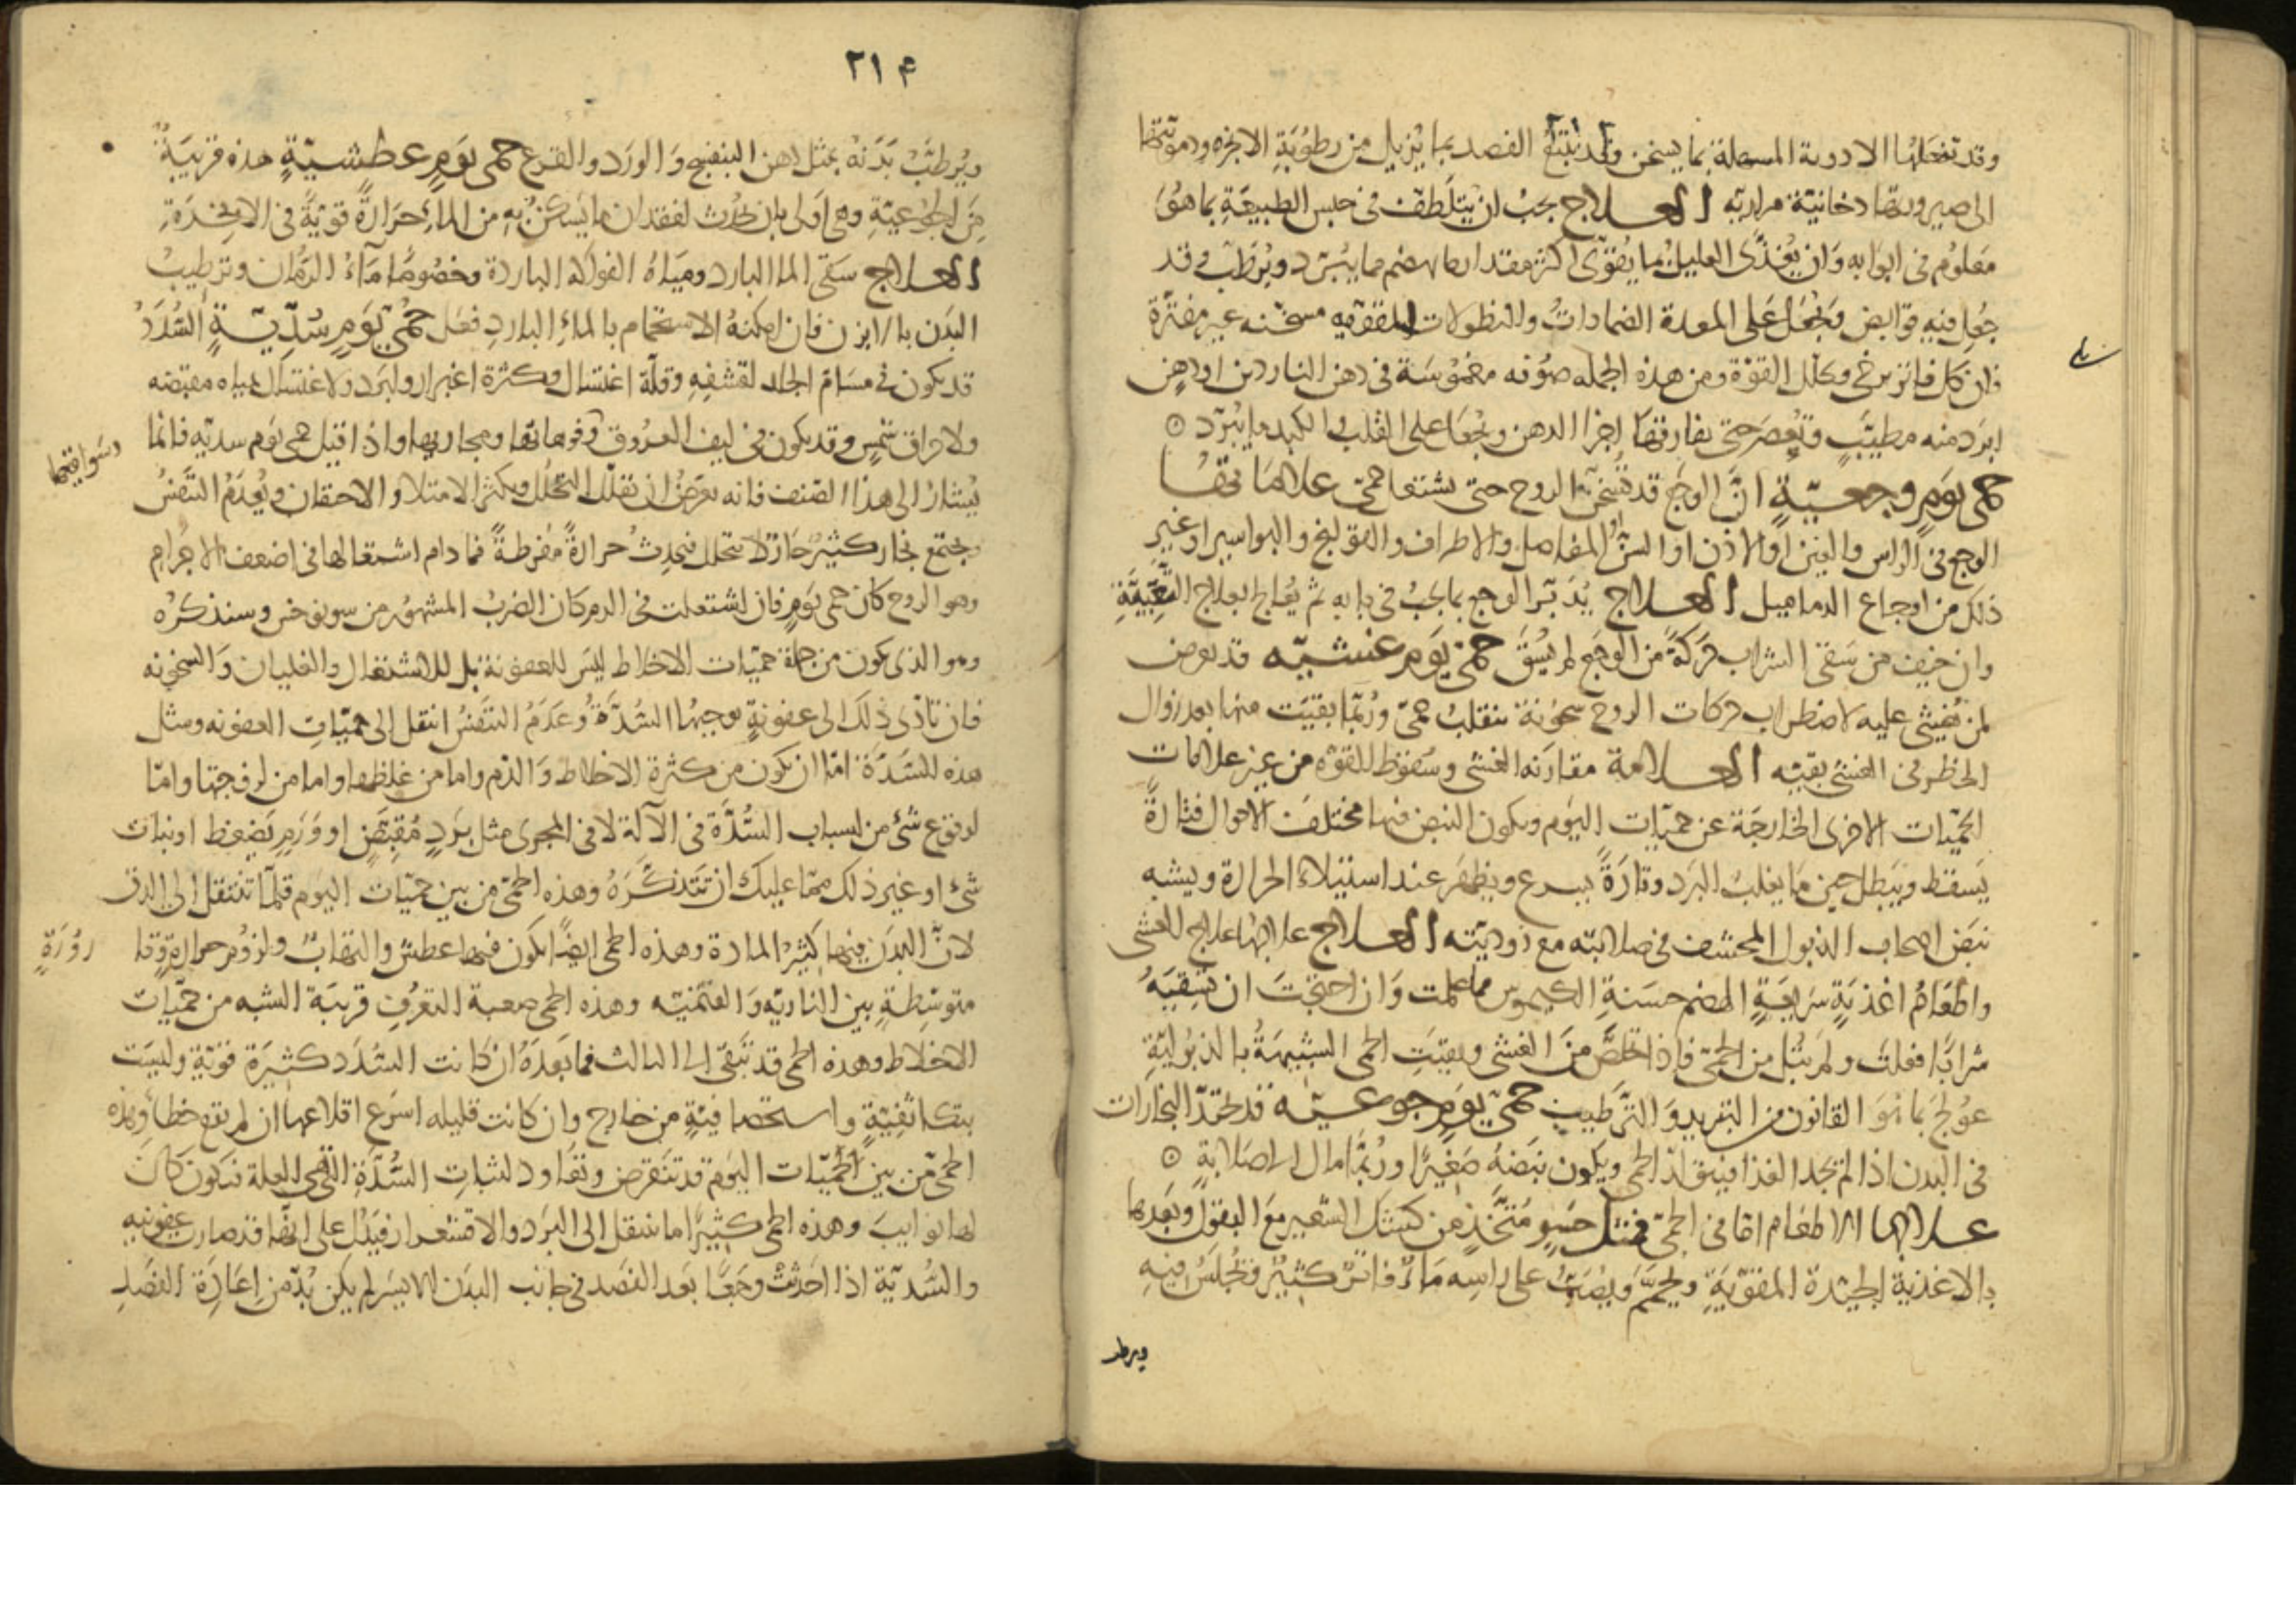 وقد تفعلها الادوية المسهلة بما يسخن وقد يتبع الفصد بما يزيل من رطوبة الابخرة ودمويتها
الى صيرورتها دخانية مرارية العلاج يجب ان يتلطف فى حبس الطبيعة بما هو
معلوم فى ابوابه وان يغذى العليل بما يقوى اكثر مقدارا ما يهضم مما يبرد ويرطب قد
جعل فيه قوابض وتجعل على المعدة الضمادات والنطولات المقوية مسخنة غير مفترة
فان كل فاتر يرخى ويحلل القوة ومن هذه الجملة صوفة مغموسة فى دهن الناردين او دهن
ابرد منه مطيب وتعصر حتى يفارقها اجزا الدهن وتجعل على القلب والكبد ما يبرد
حمى يوم وجعية ان الوجع قد تسخن الروح حتى يشتعل حمى علاماتها
الوجع فى الراس والعين او الاذن او السن او المفاصل والاطراف والقولنج والبواسير او غير
ذلك من اوجاع الدماميل العلاج يدبر الوجع بما يجب فى بابه ثم يعالج بعلاج التعبية
وان خيف من سقى الشراب حركة من الوجع لم يسق حمى يوم غشيه قد يعرض
لمن يغشى عليه لاضطراب حركات الروح سخونة ينقلب حمى وربما بقيت منها بعد زوال
الخطر فى الغشى بقيه العلامة مقارنه الغشى وسقوط للقوة من غير علامات
الحميات الاخرى الخارجة عن حميات اليوم ويكون النبض فيها مختلف الاحوال فتارة
يسقط ويبطل حين ما يغلب البرد وتارة يسرع ويظهر عند استيلاء الحرارة ويشبه
نبض اصحاب الذبول المحشف فى صلابته مع دوديته العلاج علاجها علاج الغشى
واطعام اغذية سريعة الهضم حسنة الكيموس مما علمت وان احتجت ان تسقيه
شرابا فعلت ولم تبل من الحمى فاذا تخلص من الغشى وبقيت الحمى الشبيهة بالذبولية
عولج بما هو القانون من التبريد والترطيب حمى يوم جوعيه قد تحتد البخارات
فى البدن اذا لم تجد الغذا فيتولد الحمى ويكون نبضه صغيرا وربما مال الى صلابة
علاجها الاطعام اما فى الحمى فمثل حسو متخذ من كشك الشعير مع البقول وبعدها
بالاغذية الجيدة المقوية ويحمم ويصب على راسه ماء فاتر كثير وتجلس فيه
ويرطب
٢١۴
ويرطب بدنه بمثل دهن البنفسج والورد والقرع حمى يوم عطشية هذه قريبة
من الجوعية وهى اولى بان تحدث لفقدان ما يسكن به من الماء حرارة قوية فى الابخرة
العلاج سقى الما البارد ومياه الفواكه الباردة وخصوصا ماء الرمان وترطيب
البدن بالابزن فان امكنه الاستحمام بالماء البارد فعل حمى يوم سددية السدد
قد يكون فى مسام الجلد لقشفه وقلة اغتسال وكثرة اغبرار ولبرد ولاغتسال بمياه مقبضه
ولاحراق شمس وقد يكون فى ليف العروق وفوهاتها ومجاريها واذا قيل حمى يوم سديه فانما
وسواقيها
يشار الى هذا الصنف فانه يعرض ان يقلل التحلل ويكثر الامتلا والاحتقان ويعدم التنفس
ويجتمع بخار كثير حار لا يتحلل فيحدث حرارة مفرطة فما دام اشتعالها فى اضعف الاجرام
وهو الروح كان حمى يوم فان اشتعلت فى الدم كان الضرب المشهور من سونوخس وسنذكره
وهو الذى يكون من جملة حميات الاخلاط ليس للعفونة بل للاشتعال والغليان والسخونه
فان تادى ذلك الى عفونة يوجبها السدة وعدم التنفس انتقل الى حميات العفونه ومثل
هذه السدة اما ان يكون من كثرة الاخلاط والدم واما من غلظها واما من لزوجتها واما
لوقوع شئ من اسباب السدة فى الآلة لا فى المجرى مثل برد مقبض او ورم يضغط او نبات
شئ او غير ذلك مما عليك ان تتذكره وهذه الحمى من بين حميات اليوم قلما تنتقل الى الدق
لان البدن فيها كثير المادة وهذه الحمى ايضا يكون فيها عطش والتهاب ولزوم حرارة وقا
رورة
متوسطة بين الناريه والقتمية وهذه الحمى صعبة التعرف قريبة الشبه من حميات
الاخلاط وهذه الحمى قد تبقى الى الثالث فما بعده ان كانت السدد كثيرة قوية وليست
بتكاثفية واستحصافية من خارج وان كانت قليله اسرع اقلاعها ان لم يقع خطأ وهذه
الحمى من بين الحميات اليوم قد تنقرض وتعاود لثبات السدة التى هى العلة فتكون كان
لها نوايب وهذه الحمى كثيرا ما تنتقل الى البرد والاقشعرار فيدل على انها قد صارت عفونيه
والسددية اذا احدثت وجعا بعد الفصد فى جانب البدن الايسر لم يكن بد من اعادة الفصد